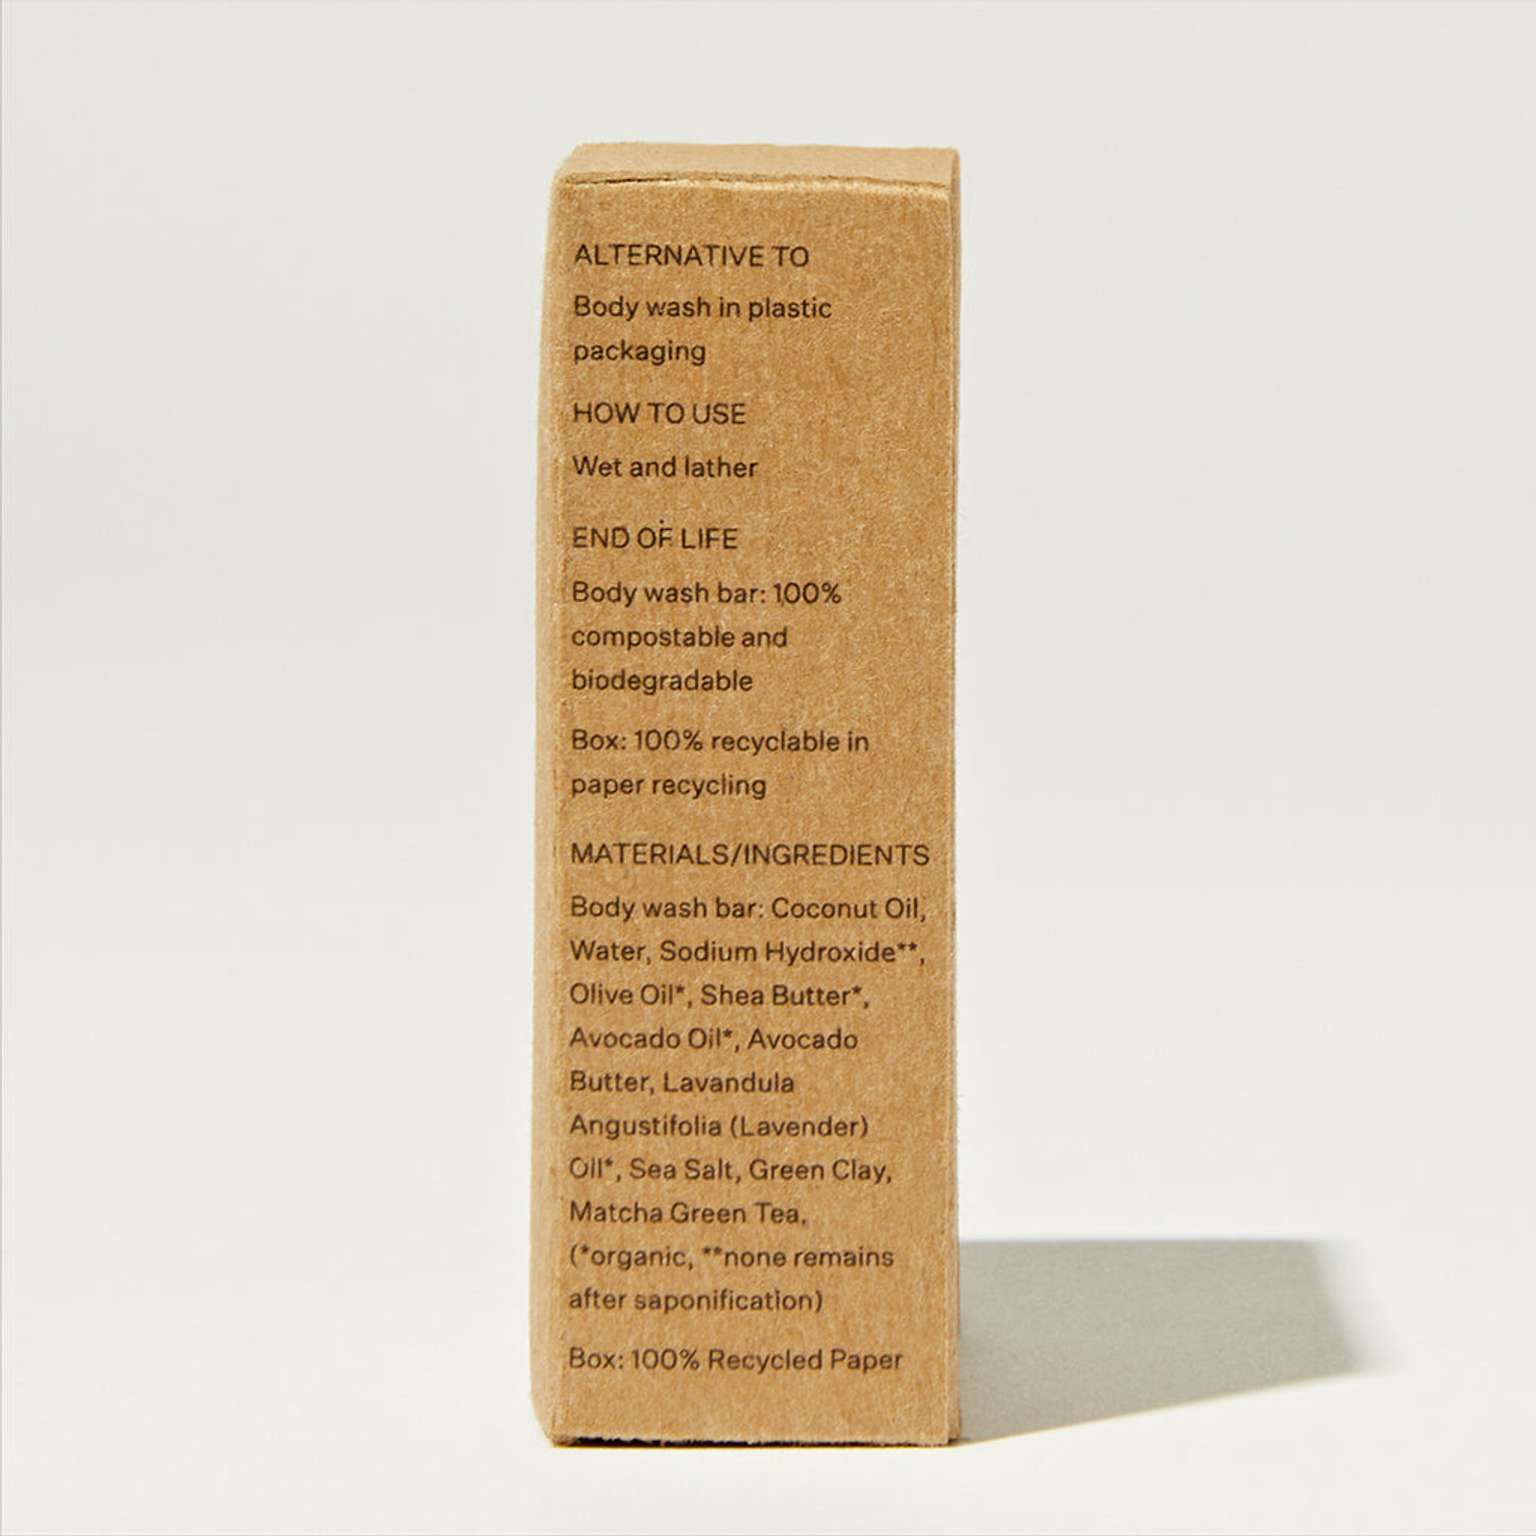 ALTERNATIVE TO
Body wash in plastic
packaging
HOW TO USE
Wet and lather
END OF LIFE
Body wash bar: 100%
compostable and
biodegradable
Box: 100% recyclable in
paper recycling
MATERIALS/INGREDIENTS
Body wash bar: Coconut Oil,
Water, Sodium Hydroxide**,
Olive Oil*, Shea Butter*,
Avocado Oil*, Avocado
Butter, Lavandula
Angustifolia (Lavender)
Oil*, Sea Salt, Green Clay,
Matcha Green Tea.
(*organic, **none remains
after saponification)
Box: 100% Recycled Paper